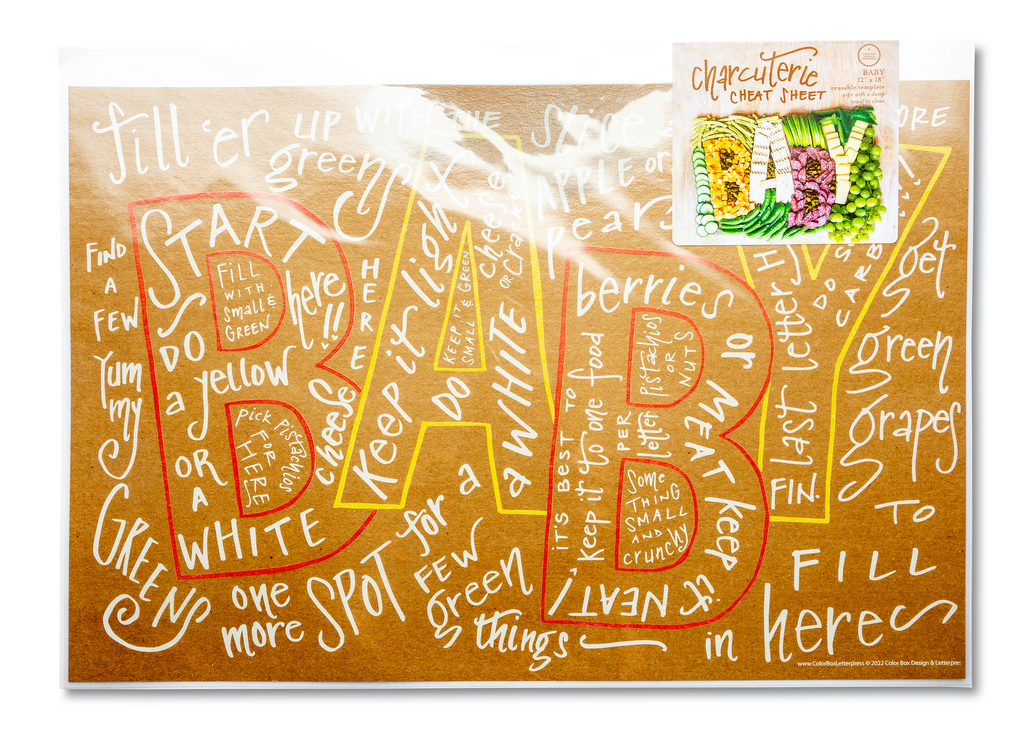 charcuterie
CHEAT SHEET
BABY
12" x 18"
reusable template
wipe with a damp
towel to clean
BABY
fill 'er up WITH THE
greens
SLICE
APPLE OR
pears
ORE
START
here!!
FILL
WITH
small &
GREEN
DO
a yellow
cheese
OR
A
WHITE
PICK
PISTACHIOS
FOR
HERE
HERE
FIND
A
FEW
Yum
my
GREENS
Keep it light
KEEP IT
SMALL & GREEN
DO
a WHITE
cheese
OR CRACKER
one
more SPOT for a
FEW
green
things
berries or MEAT keep it NEAT!
pistachios
OR
NUTS
IT'S BEST TO
keep it to one food
PER
letter
Some
THING
SMALL
AND
crunchy
last letter
FIN.
DO
CARB
get
green
grapes
TO
FILL
in here
www.ColorBoxLetterpress © 2022 Color Box Design & Letterpre
BABY